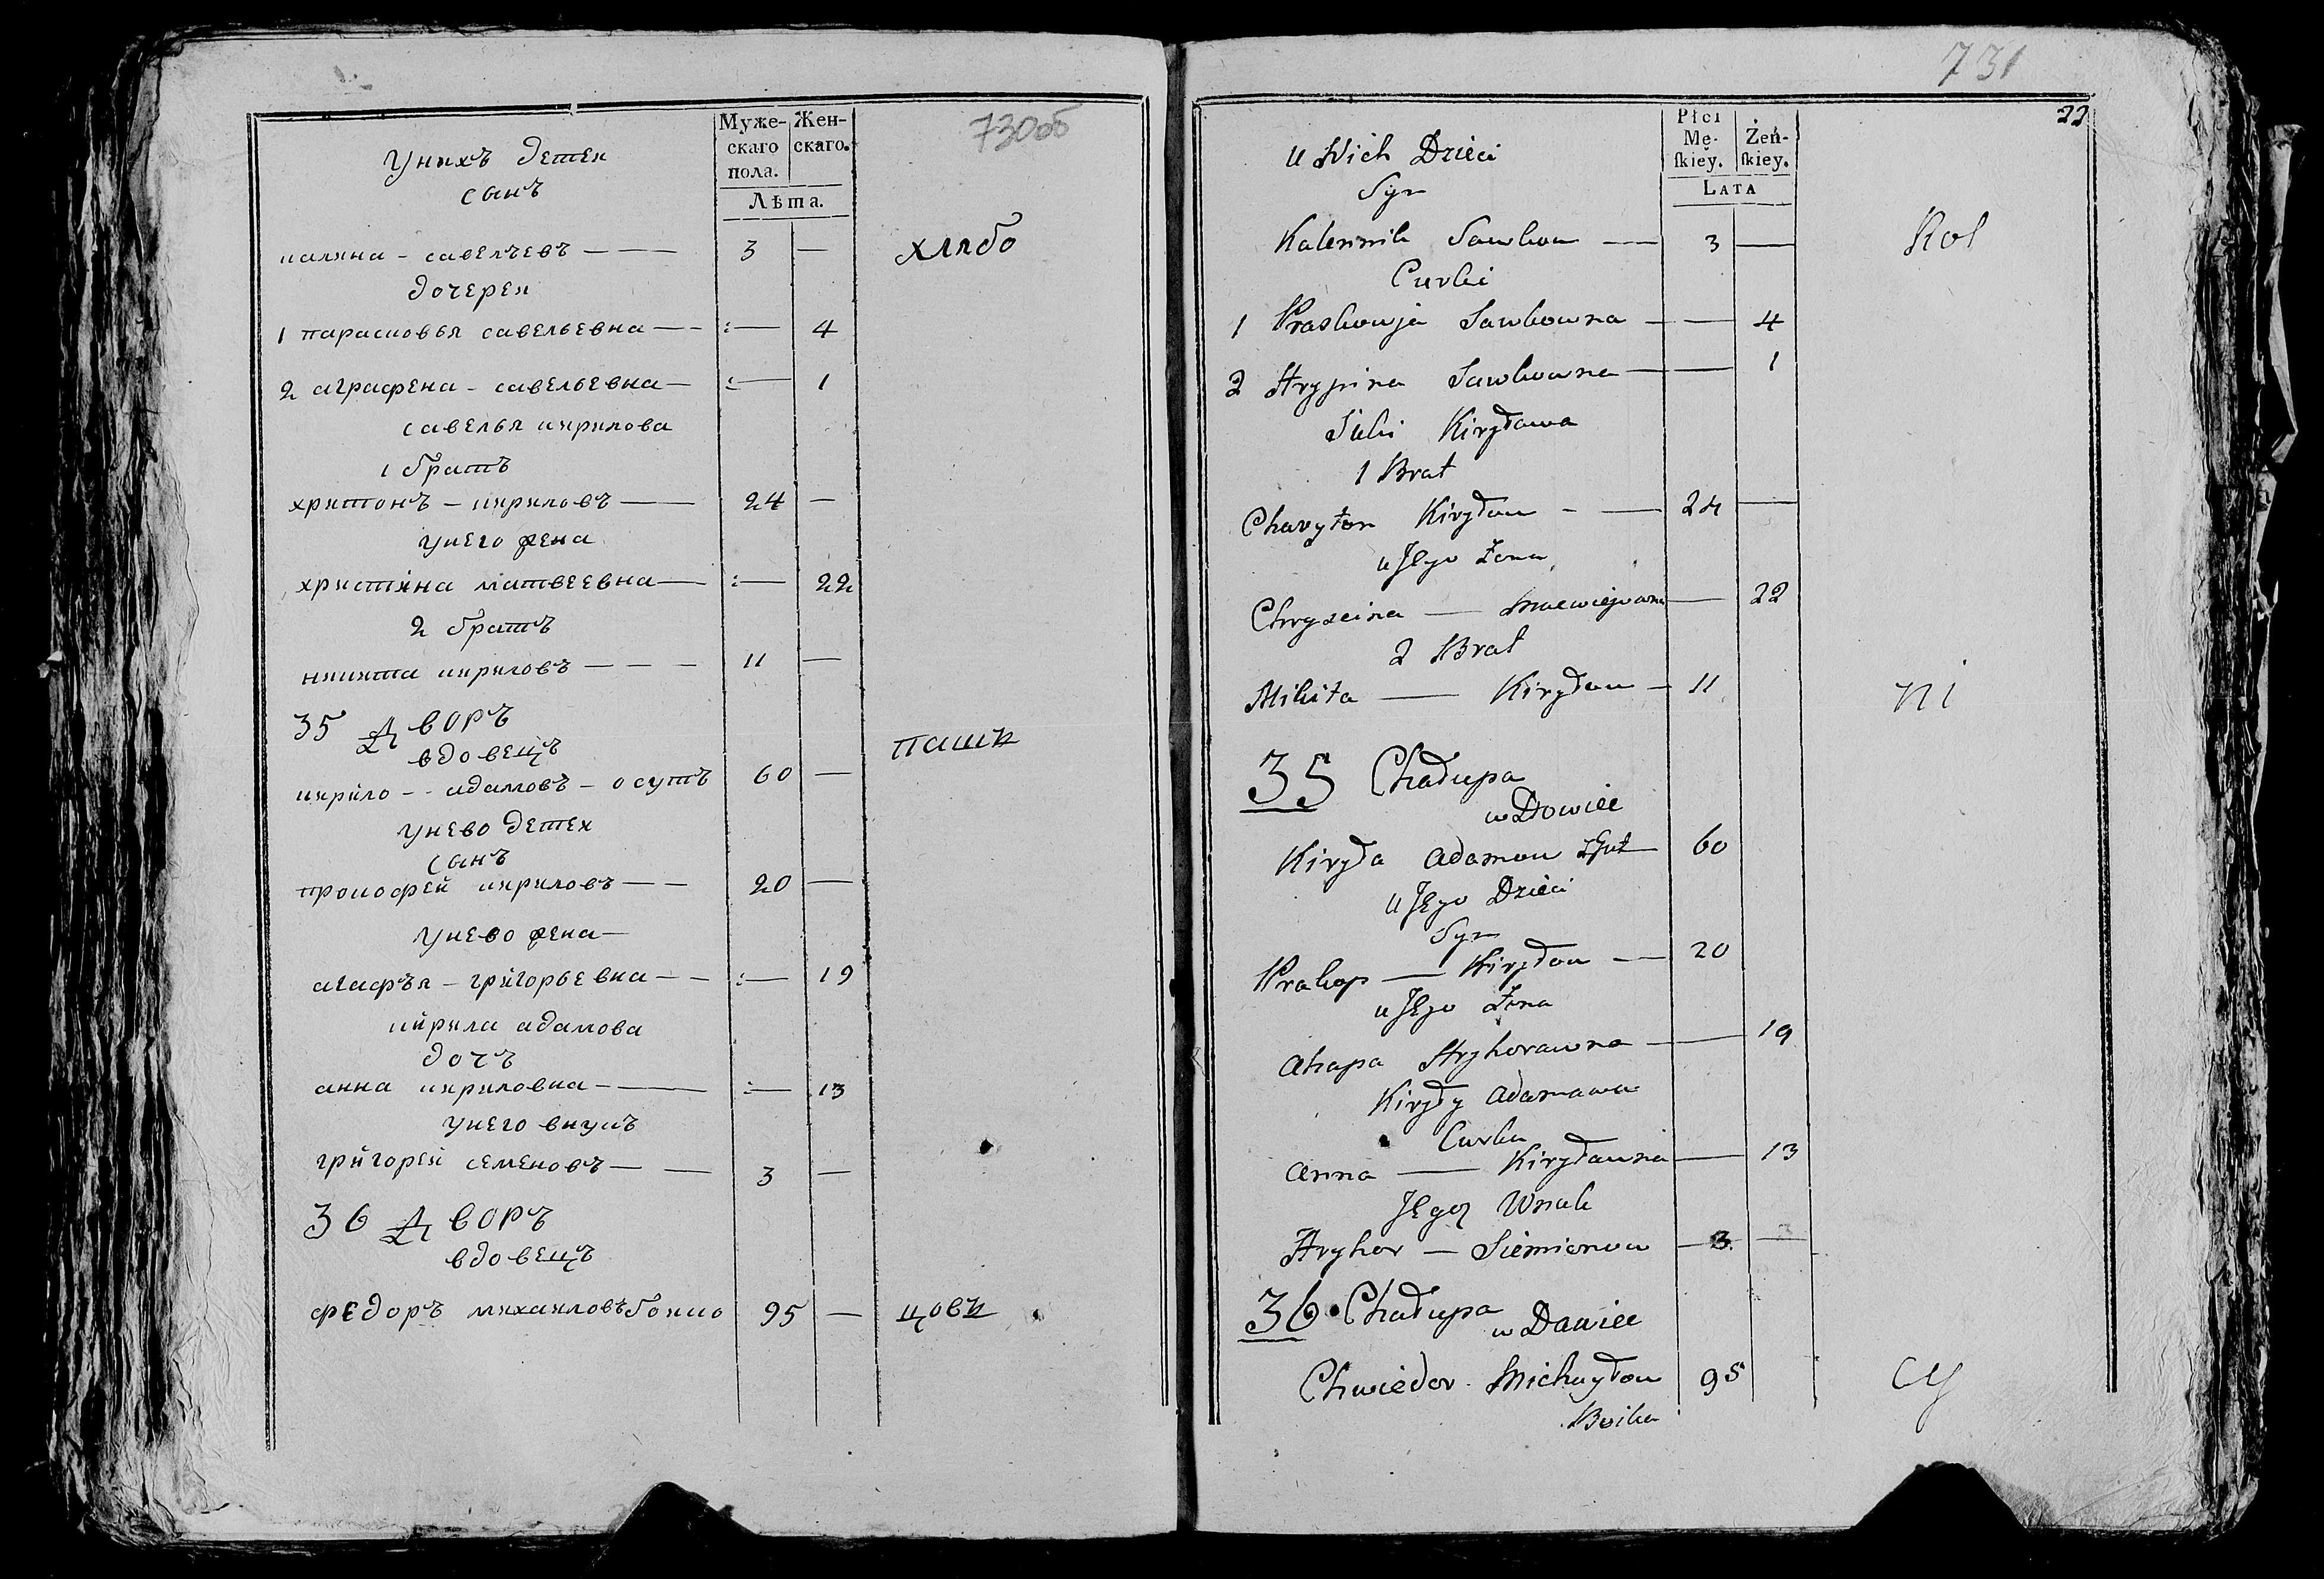 730об
Муже-
скаго
пола.
Жен-
скаго.
Лѣта.
унихъ детеи
сынъ
калина - савельевъ — 3 —
хлябо
дочереи
1 парасковья савельевна — :— 4
2 аграфена - савельевна — :— 1
савелья кирилова
1 братъ
харитонъ - кириловъ — 24 —
унего жена
христина матвеевна — :— 22
2 братъ
никита кириловъ — — — 11 —
35 Дворъ
вдовецъ
пашц
кирило - - адамовъ - осутъ 60 —
унево детеи
сынъ
прокофей кириловъ — — 20 —
унево жена —
агафья - григорьевна — — :— 19
кирила адамова
дочъ
анна кириловна — — :— 13
унего внукъ
григорей семеновъ — — 3 —
36 Дворъ
вдовецъ
федоръ михаиловъ боико 95 — цовъ
731
22
Płci
Mę-
ſkiey.
Żeń-
ſkiey.
Lata
u Nich Dzieci
Syn
Kalennik Sawkow — 3 —
Rol
Curki
1 Praskowja Sawkowna — — 4
2 Hrypina Sawkowna — — 1
Sauki Kiryława
1 Brat
Charyton Kiryłow - — 24 —
u Jego Żona
Chryscina — Macwiejowna — 22
2 Brat
Mikita — Kiryłow — 11
ni
35 Chałupa
wDowiec
Kiryła Adamow 60
u Jego Dzieci
Syn
Prakop — Kiryłow — 20
u Jego Żona
Ahapa Hryhorawna — 19
Kiryły Adamawa
Curka
Anna — Kiryławna — 13
Jego Wnuk
Hryhor — Siemionow — 3 —
36 Chałupa
wDawiec
Chwiedor Michayłow 95
cy
Boika